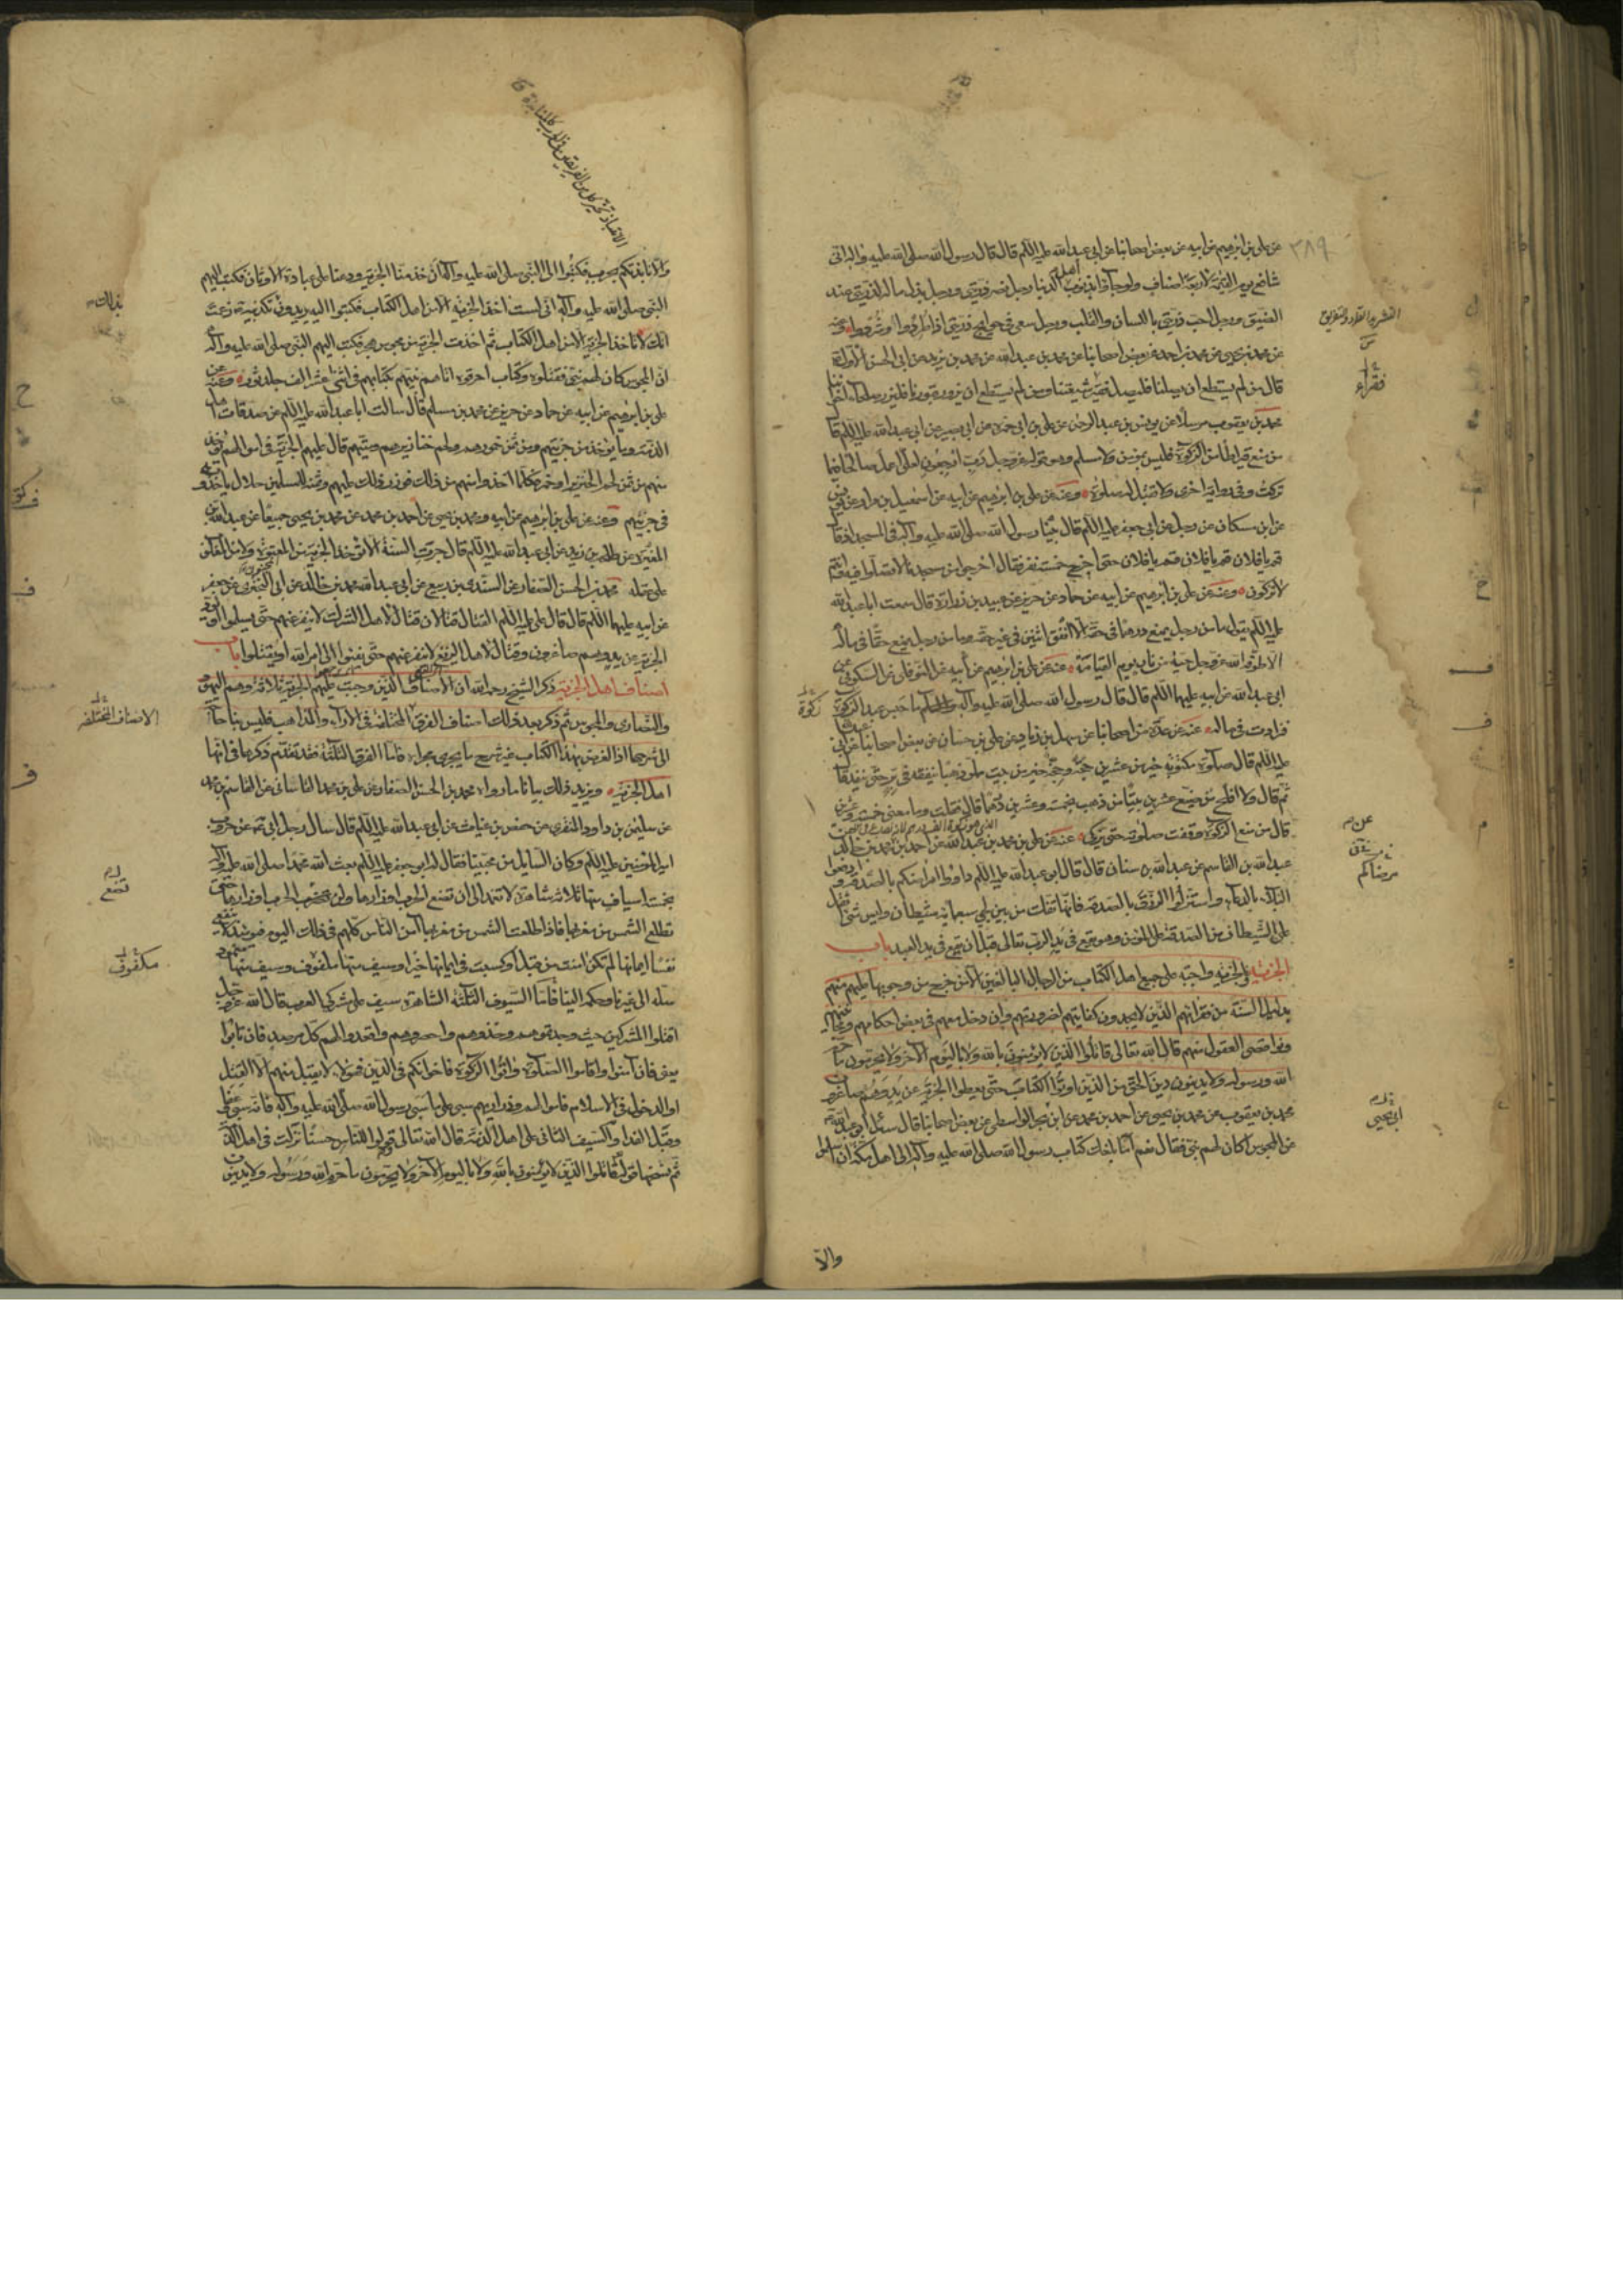 عن علی بن ابرهیم عن ابیه عن بعض اصحابنا عن ابی عبد الله علیه السلم قال قال رسول الله صلی الله علیه وآله انی
شافع یوم القیمة لاربعة اصناف ولو جاؤا بذنوب اهل الدنیا رجل نصر ذریتی ورجل بذل ماله لذریتی عند
الضیق ورجل احب ذریتی باللسان والقلب ورجل سعی فی حوایج ذریتی اذا طردوا وشردوا وعنه
عن محمد بن یحیی عن محمد بن احمد عن بعض اصحابنا عن محمد بن عبد الله عن محمد بن یزید عن ابی الحسن الاول
قال من لم یستطع ان یصلنا فلیصل فقیر شیعتنا ومن لم یستطع ان یزور قبورنا فلیزر صلحاء اخواننا
محمد بن یعقوب مرسلا عن یونس بن عبد الرحمن عن علی بن ابی حمزة عن ابی بصیر عن ابی عبد الله علیه السلم قا
من منع قیراطا من الزکوة فلیس بمؤمن ولا مسلم وهو قوله عز وجل رب ارجعون لعلی اعمل صالحا فیما
ترکت وفی روایة اخری ولا تقبل له صلوة وعنه عن علی بن ابرهیم عن ابیه عن اسمعیل بن مرار عن یونس
عن ابن مسکان عن رجل عن ابی جعفر علیه السلم قال بینا رسول الله صلی الله علیه وآله فی المسجد اذ قا
قم یا فلان قم یا فلان قم یا فلان حتی اخرج خمسة نفر فقال اخرجوا من مسجدنا لا تصلوا فیه وانتم
لا تزکون وعنه عن علی بن ابرهیم عن ابیه عن حماد عن حریز عن عبید بن زرارة قال سمعت ابا عبد الله
علیه السلم یقول ما من رجل یمنع درهما فی حقه الا انفق اثنین فی غیر حقه وما من رجل یمنع حقا فی ماله
الا طوقه الله عز وجل حیة من نار یوم القیامة عنه عن علی بن ابرهیم عن ابیه عن النوفلی عن السکونی عن
ابی عبد الله عن ابیه علیهما السلم قال قال رسول الله صلی الله علیه وآله ما حبس عبد زکوة
فزادت فی ماله عنه عن عدة من اصحابنا عن سهل بن زیاد عن علی بن حسان عن بعض اصحابنا عن ابی عبد الله
علیه السلم قال صلوة مکتوبة خیر من عشرین حجة وحجة خیر من بیت مملو ذهبا ینفقه فی بر حتی ینفد قا
ثم قال ولا افلح من ضیع عشرین بیتا من ذهب بخمسة وعشرین درهما قال فقلت وما معنی خمسة وعشرین
قال من منع الزکوة وقفت صلوته حتی یزکی عنه عن علی بن محمد بن عبد الله عن احمد بن محمد بن خالد عن
عبد الله بن القاسم عن عبد الله بن سنان قال قال ابو عبد الله علیه السلم داووا مرضاکم بالصدقة وادفعوا
البلاء بالدعاء واستنزلوا الرزق بالصدقة فانها تفک من بین لحیی سبعمایة شیطان ولیس شیء اثقل
علی الشیطان من الصدقة علی المؤمن وهو تقع فی ید الرب تعالی قبل ان تقع فی ید العبد باب
الجزیة والجزیة واجبة علی جمیع اهل الکتاب من الرجال البالغین الا من خرج من وجوبها علیهم منهم
الله ورسوله ولا یدینون دین الحق من الذین اوتوا الکتاب حتی یعطوا الجزیة عن ید وهم صاغرون
محمد بن یعقوب عن محمد بن یحیی عن احمد بن محمد عن ابی یحیی الواسطی عن بعض اصحابنا قال سئل ابو عبد الله
عن المجوس اکان لهم نبی فقال نعم اما بلغک کتاب رسول الله صلی الله علیه وآله الی اهل مکة ان اسلموا
والا
والا نابذتکم بحرب فکتبوا الی النبی صلی الله علیه وآله ان خذ منا الجزیة ودعنا علی عبادة الاوثان فکتب الیهم
النبی صلی الله علیه وآله انی لست آخذ الجزیة الا من اهل الکتاب فکتبوا الیه یریدون تکذیبه زعمت
انک لا تاخذ الجزیة الا من اهل الکتاب ثم اخذت الجزیة من مجوس هجر فکتب الیهم النبی صلی الله علیه وآله
ان المجوس کان لهم نبی فقتلوه وکتاب احرقوه اتاهم نبیهم بکتابهم فی اثنی عشر الف جلد ثور وعنه عن
علی بن ابرهیم عن ابیه عن حماد عن حریز عن محمد بن مسلم قال سالت ابا عبد الله علیه السلم عن صدقات اهل
الذمة وما یؤخذ من جزیتهم من ثمن خمورهم ولحم خنازیرهم ومیتهم قال علیهم الجزیة فی اموالهم تؤخذ
منهم من ثمن لحم الخنزیر او خمر وکلما اخذوا منهم من ذلک فوزر ذلک علیهم وثمنه للمسلمین حلال یاخذونه
فی جزیتهم وعنه عن علی بن ابرهیم عن ابیه ومحمد بن یحیی عن احمد بن محمد عن محمد بن یحیی جمیعا عن عبد الله بن
المغیرة عن طلحة بن زید عن ابی عبد الله علیه السلم قال جرت السنة الا تؤخذ الجزیة من المعتوه ولا من المغلوب
علی عقله محمد بن الحسن الصفار عن السندی بن ربیع عن ابی عبد الله محمد بن خالد عن ابی البختری عن جعفر
عن ابیه علیهما السلم قال قال علی علیه السلم القتال قتالان قتال لاهل الشرک لا ینفر عنهم حتی یسلموا او یؤتوا
الجزیة عن ید وهم صاغرون وقتال لاهل الزیغ لا ینفر عنهم حتی یفیئوا الی امر الله او یقتلوا باب
اصناف اهل الجزیة ذکر الشیخ رحمه الله ان الاصناف الذین وجبت علیهم الجزیة ثلاثة وهم الیهود
والنصاری والمجوس ثم ذکر بعد ذلک اصناف الفرق المختلفة فی الآراء والمذاهب فلیس بنا حاجة
الی شرحها اذ الغرض بهذا الکتاب غیر شرح ما یجری مجراه فاما الفرق الثلثة فقد تقدم ذکرها فی انها
اهل الجزیة ویزید ذلک بیانا ما رواه محمد بن الحسن الصفار عن علی بن محمد القاسانی عن القاسم بن محمد
عن سلیمن بن داود المنقری عن حفص بن غیاث عن ابی عبد الله علیه السلم قال سال رجل ابی عن حروب
امیر المؤمنین علیه السلم وکان السایل من محبینا فقال له ابو جعفر علیه السلم بعث الله محمدا صلی الله علیه وآله
بخمسة اسیاف منها ثلاثة شاهرة لا تغمد الی ان تضع الحرب اوزارها ولن تضع الحرب اوزارها حتی
تطلع الشمس من مغربها فاذا طلعت الشمس من مغربها آمن الناس کلهم فی ذلک الیوم فیومئذ لا ینفع
نفسا ایمانها لم تکن امنت من قبل او کسبت فی ایمانها خیرا وسیف منها ملفوف وسیف منها مغمود
سله الی غیرنا وحکمه الینا فاما السیوف الثلثة الشاهرة سیف علی مشرکی العرب قال الله عز وجل
اقتلوا المشرکین حیث وجدتموهم وخذوهم واحصروهم واقعدوا لهم کل مرصد فان تابوا
یعنی فان آمنوا واقاموا الصلوة وآتوا الزکوة فاخوانکم فی الدین فهؤلاء لا یقبل منهم الا القتل
او الدخول فی الاسلام فاموالهم وذراریهم سبی علی ما سبی رسول الله صلی الله علیه وآله فانه سبی وعفا
وقبل الفداء والسیف الثانی علی اهل الذمة قال الله تعالی قولوا للناس حسنا نزلت فی اهل الذمة
ثم نسخها قوله قاتلوا الذین لا یؤمنون بالله ولا بالیوم الآخر ولا یحرمون ما حرم الله ورسوله ولا یدینون
٣٨٩
فقراء
مرضاکم
ابی یحیی
زکوة
بذلک
الاصناف المختلفة
تضع
مکفوف